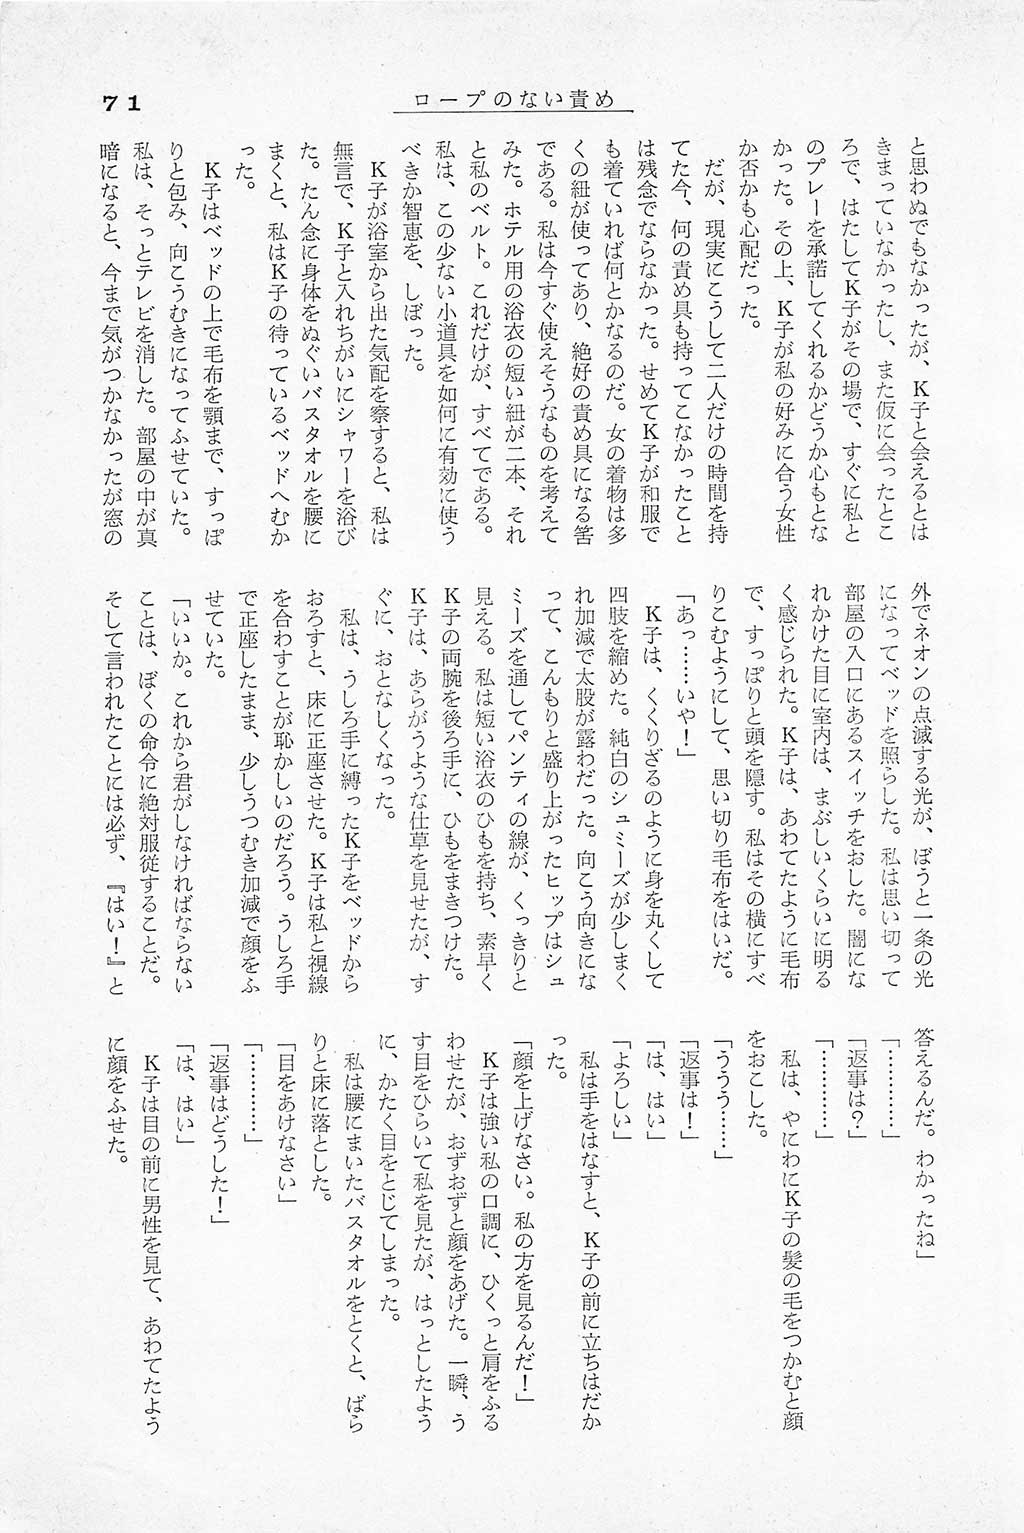 71
ロープのない責め
と思わぬでもなかったが、K子と会えるとは
きまっていなかったし、また仮に会ったとこ
ろで、はたしてK子がその場で、すぐに私と
のプレーを承諾してくれるかどうか心もとな
かった。その上、K子が私の好みに合う女性
か否かも心配だった。
だが、現実にこうして二人だけの時間を持
てた今、何の責め具も持ってこなかったこと
は残念でならなかった。せめてK子が和服で
も着ていれば何とかなるのだ。女の着物は多
くの紐が使ってあり、絶好の責め具になる筈
である。私は今すぐ使えそうなものを考えて
みた。ホテル用の浴衣の短い紐が二本、それ
と私のベルト。これだけが、すべてである。
私は、この少ない小道具を如何に有効に使う
べきか智恵を、しぼった。
K子が浴室から出た気配を察すると、私は
無言で、K子と入れちがいにシャワーを浴び
た。たん念に身体をぬぐいバスタオルを腰に
まくと、私はK子の待っているベッドへむか
った。
K子はベッドの上で毛布を顎まで、すっぽ
りと包み、向こうむきになってふせていた。
私は、そっとテレビを消した。部屋の中が真
暗になると、今まで気がつかなかったが窓の
外でネオンの点滅する光が、ぼうと一条の光
になってベッドを照らした。私は思い切って
部屋の入口にあるスイッチをおした。闇にな
れかけた目に室内は、まぶしいくらいに明る
く感じられた。K子は、あわてたように毛布
で、すっぽりと頭を隠す。私はその横にすべ
りこむようにして、思い切り毛布をはいだ。
「あっ……いや！」
K子は、くくりざるのように身を丸くして
四肢を縮めた。純白のシュミーズが少しまく
れ加減で太股が露わだった。向こう向きにな
って、こんもりと盛り上がったヒップはシュ
ミーズを通してパンティの線が、くっきりと
見える。私は短い浴衣のひもを持ち、素早く
K子の両腕を後ろ手に、ひもをまきつけた。
K子は、あらがうような仕草を見せたが、す
ぐに、おとなしくなった。
私は、うしろ手に縛ったK子をベッドから
おろすと、床に正座させた。K子は私と視線
を合わすことが恥かしいのだろう。うしろ手
で正座したまま、少しうつむき加減で顔をふ
せていた。
「いいか。これから君がしなければならない
ことは、ぼくの命令に絶対服従することだ。
そして言われたことには必ず、『はい！』と
答えるんだ。わかったね」
「…………」
「返事は？」
「…………」
私は、やにわにK子の髪の毛をつかむと顔
をおこした。
「ううう……」
「返事は！」
「は、はい」
「よろしい」
私は手をはなすと、K子の前に立ちはだか
った。
「顔を上げなさい。私の方を見るんだ！」
K子は強い私の口調に、ひくっと肩をふる
わせたが、おずおずと顔をあげた。一瞬、う
す目をひらいて私を見たが、はっとしたよう
に、かたく目をとじてしまった。
私は腰にまいたバスタオルをとくと、ばら
りと床に落とした。
「目をあけなさい」
「…………」
「返事はどうした！」
「は、はい」
K子は目の前に男性を見て、あわてたよう
に顔をふせた。